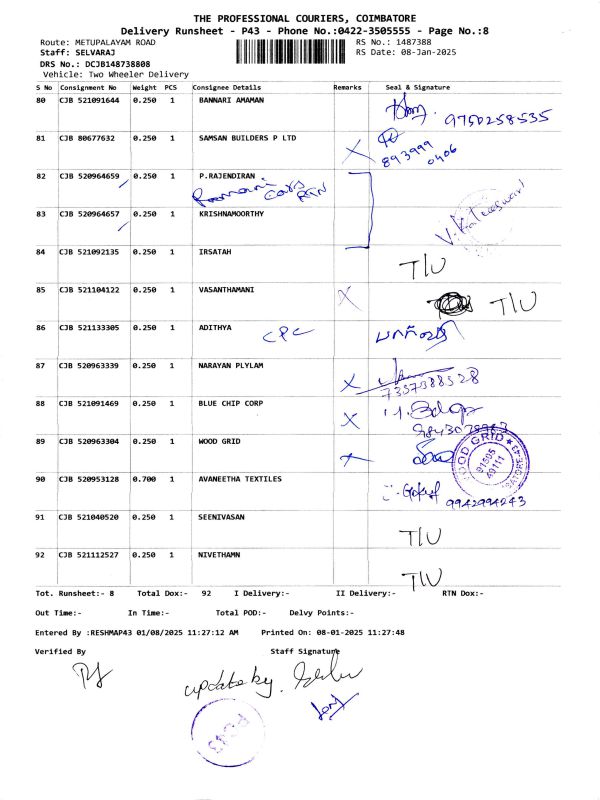 THE PROFESSIONAL COURIERS, COIMBATORE
Delivery Runsheet - P43 - Phone No.:0422-3505555 - Page No.:8
Route: METUPALAYAM ROAD RS No.: 1487388
Staff: SELVARAJ RS Date: 08-Jan-2025
DRS No.: DCJB148738808
Vehicle: Two Wheeler Delivery
S No Consignment No Weight PCS Consignee Details Remarks Seal & Signature
80 CJB 521091644 0.250 1 BANNARI AMAMAN
9750258535
81 CJB 80677632 0.250 1 SAMSAN BUILDERS P LTD X
893999
0406
82 CJB 520964659 0.250 1 P.RAJENDIRAN
83 CJB 520964657 0.250 1 KRISHNAMOORTHY
84 CJB 521092135 0.250 1 IRSATAH T/U
85 CJB 521104122 0.250 1 VASANTHAMANI X T/U
86 CJB 521133305 0.250 1 ADITHYA CPC
87 CJB 520963339 0.250 1 NARAYAN PLYLAM X
7357388528
88 CJB 521091469 0.250 1 BLUE CHIP CORP X
89 CJB 520963304 0.250 1 WOOD GRID X
WOOD GRID
90 CJB 520953128 0.700 1 AVANEETHA TEXTILES
9942994243
91 CJB 521040520 0.250 1 SEENIVASAN T/U
92 CJB 521112527 0.250 1 NIVETHAMN T/U
Tot. Runsheet:- 8 Total Dox:- 92 I Delivery:- II Delivery:- RTN Dox:-
Out Time:- In Time:- Total POD:- Delvy Points:-
Entered By :RESHMAP43 01/08/2025 11:27:12 AM Printed On: 08-01-2025 11:27:48
Verified By Staff Signature
update by.
PC43